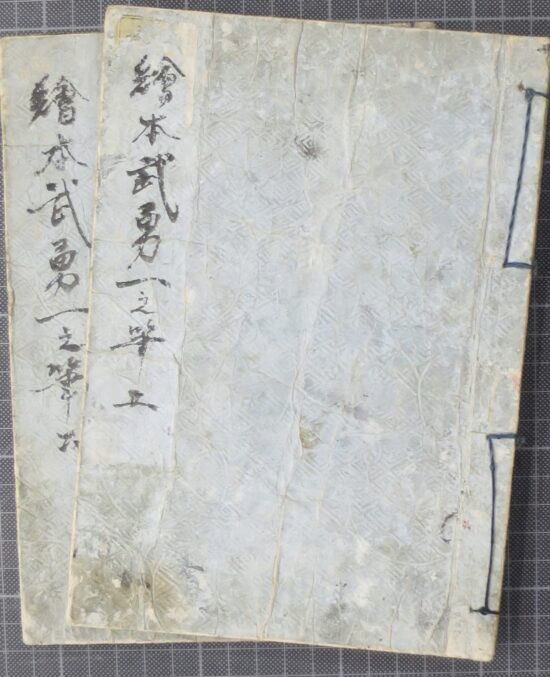 繪本武勇一之筆 五
繪本武勇一之筆 六